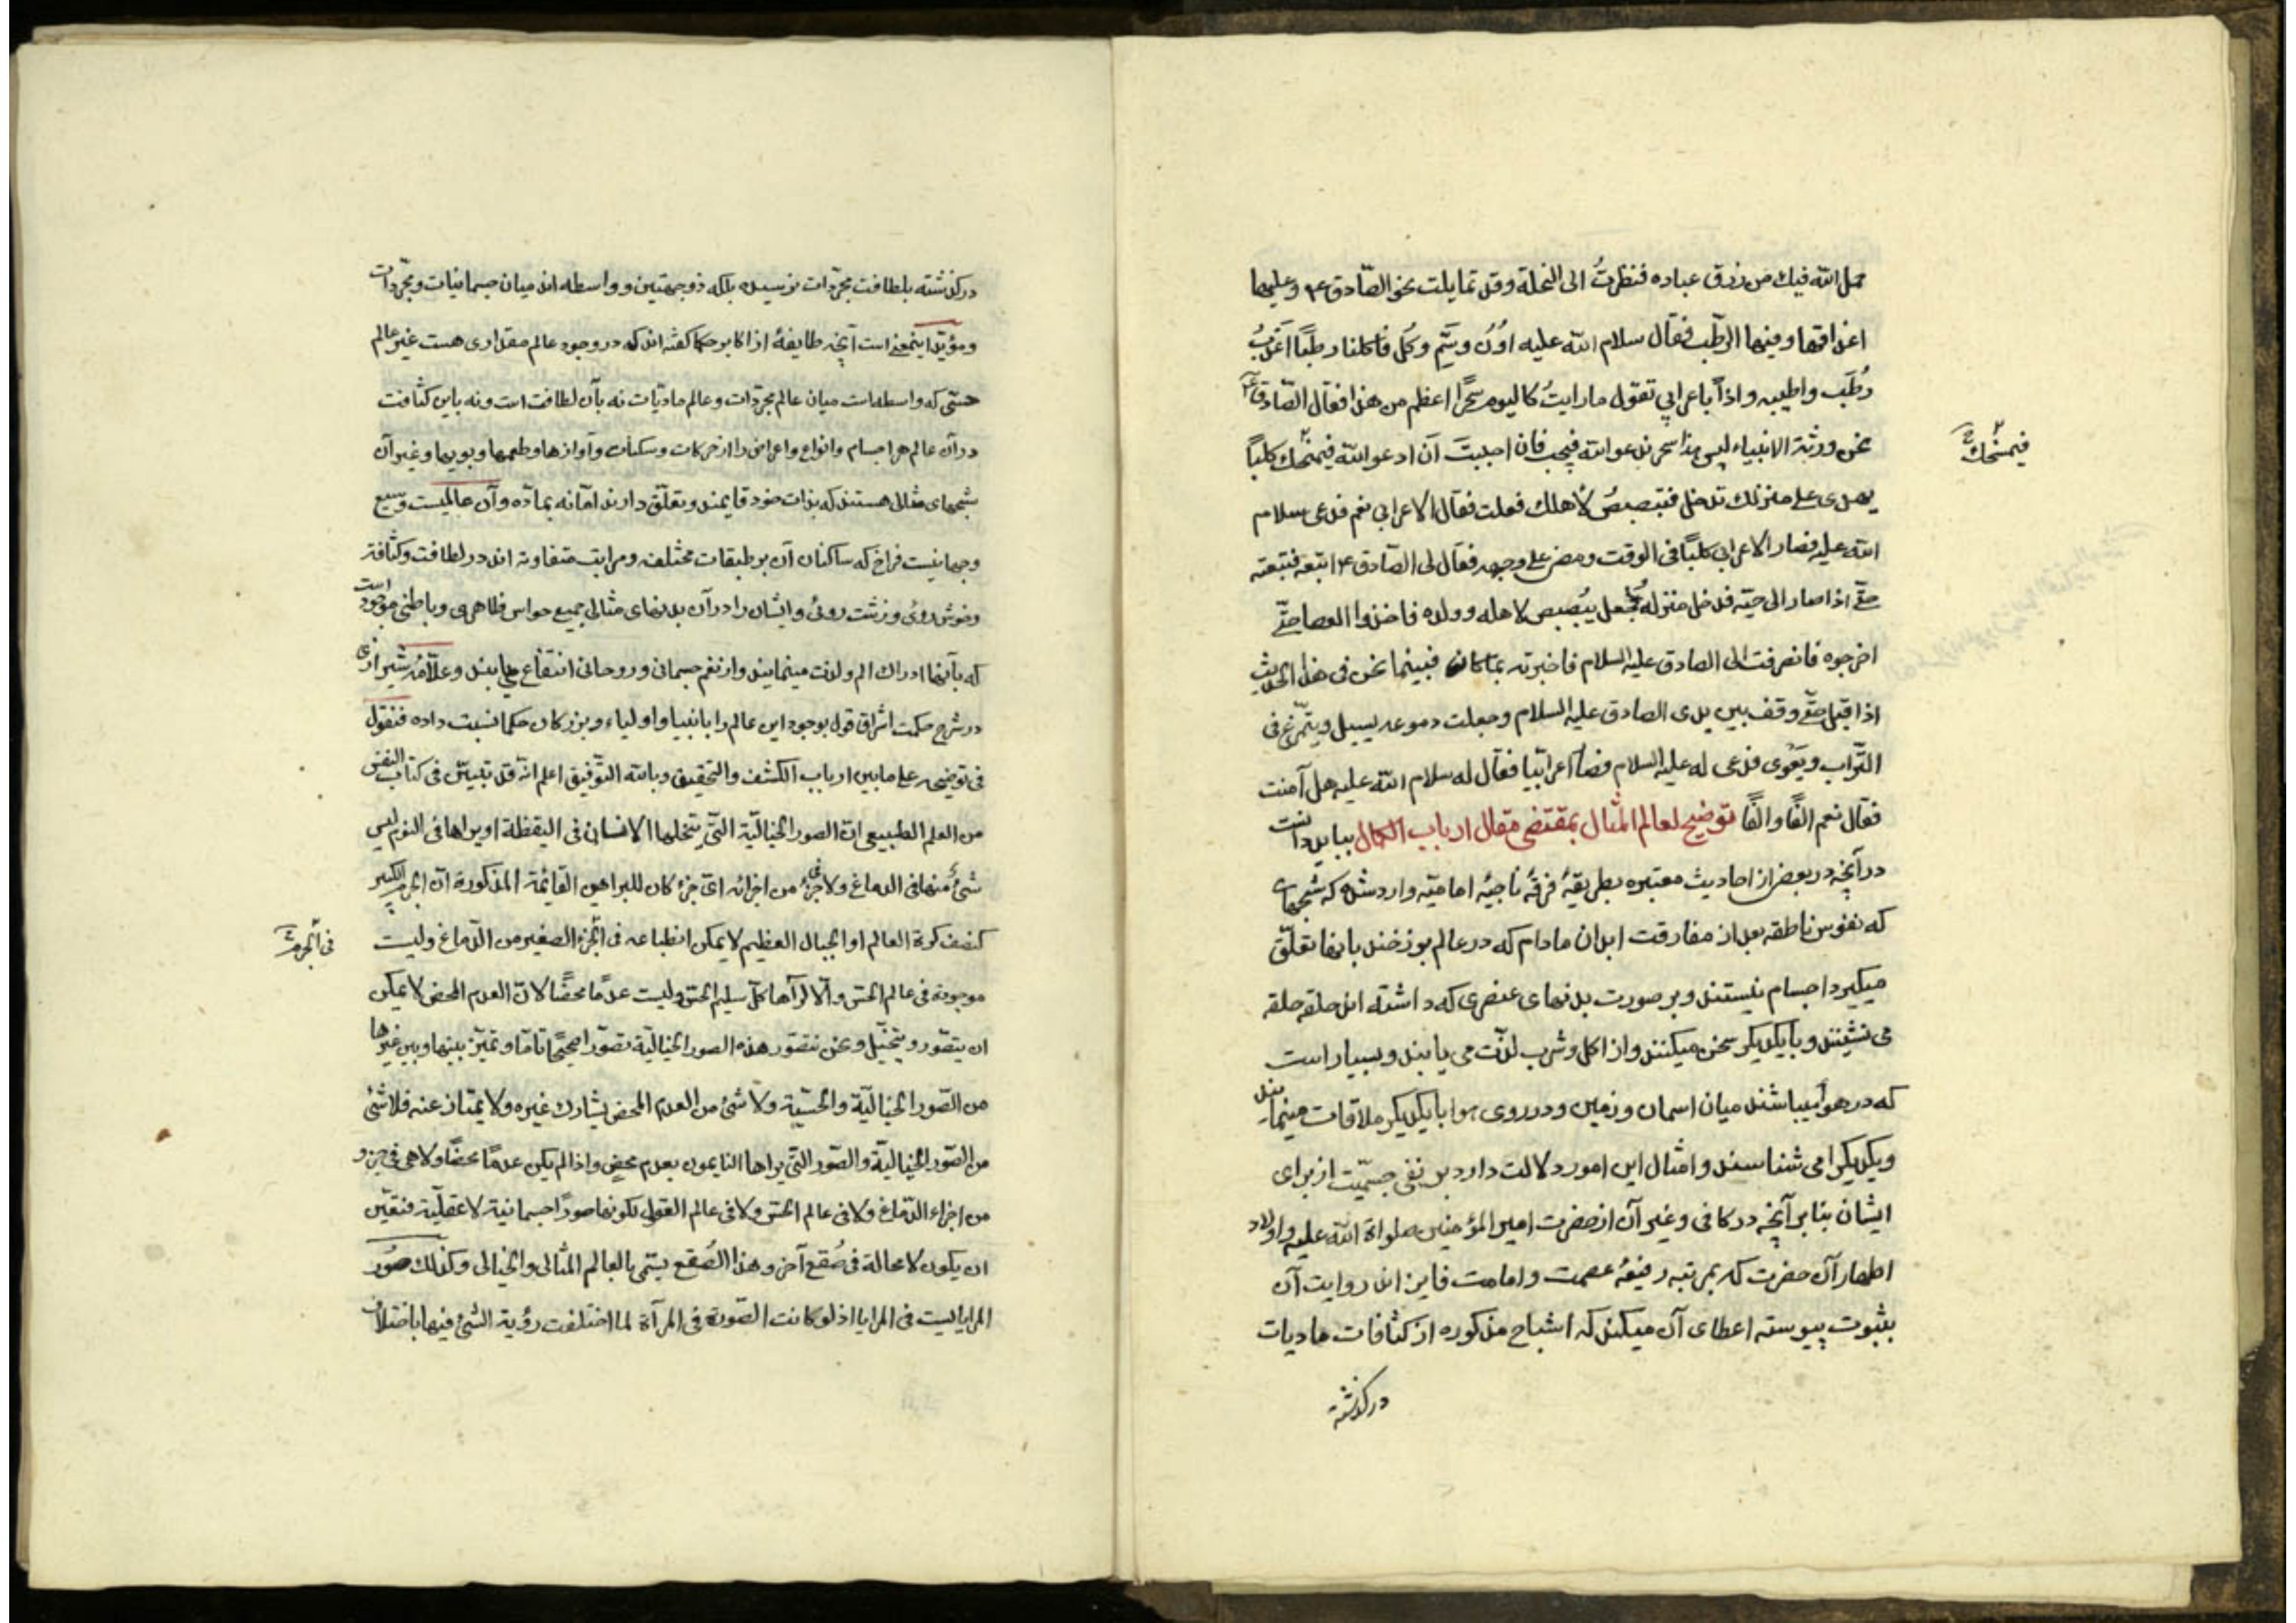 جعل الله فيك من رزق عباده فنظرتُ الى النخلة وقد تمايلت نحو الصّادق ع۴ وعليها
اعذاقها وفيها الرّطب فقال سلام الله عليه اُدْنُ وسَمِّ وكُل فاكلنا رطبًا اعْذَبُ
رُطَب واطيبه واذًا باعرابي تقول ما رايتُ كاليوم سحرًا اعظم من هذا فقال الصّادق ع۴
نحن ورثة الانبياء ليس منا سحر ندعو الله فيجب فان احببتَ اَن ادعو الله فيمسَخك كلبًا
فيمسَخك
يهدى على منزلك تدخل فتبصبصُ لأهلك فعلت فقال الاعرابي نعم فدعى سلام
الله عليه فصار الاعرابى كلبًا فى الوقت ومضى على وجهه فقال لى الصّادق ع۴ اتبعه فتبعته
حتّى اذا صار الى حيّه فدخل منزله فجعل يبُصبص لاهله وولده فاخذوا العصا حتّى
اخرجوه فانصرفت الى الصادق عليه السلام فاخبرته بما كان فبينما نحن فى هذا الحديث
اذ اقبل حتّى وقف بين يدى الصادق عليه السلام وجعلت دموعه يسيل ويتمّرغ فى
التّراب ويَعْوى فدعى له عليه السلام فصار اعرابيّا فقال له سلام الله عليه هل آمنت
فقال نعم الفًا والفًا توضيح لعالم المثال بمقتضى مقال ارباب الكمال ببايد دانست
در آنچه در بعضى از احاديث معتبره بطريقهٔ فرقهٔ ناجيهٔ اماميّه وارد شده كه شبحهاى
كه نفوس ناطقه بعد از مفارقت ابدان مادام كه در عالم برزخند بانها تعلّق
ميكيرد اجسام نيستند وبر صورت بدنهاى عنصرى كه داشته اند حلقه حلقه
مى نشينند وبا يكديكر سخن ميكنند واز اكل وشرب لذّت مى يابند وبسيار است
كه در هوا ميباشند ميان اسمان وزمين ودر روى هوا با يكديكر ملاقات مينمايند
ويكديكر را مى شناسند وامثال اين امور دلالت دارد بر نفى جسمّيت از براى
ايشان بنابر آنچه در كافى وغير آن از حضرت امير المؤمنين صلواة الله عليه واولاد
اطهار آن حضرت كه بمرتبه رفيعهٔ عصمت وامامت فايز اند روايت آن
بثبوت پيوسته اعطاى آن ميكند كه اشباح مذكوره از كثافات ماديات
در كذشته
در كذشته بلطافت مجرّدات نرسيده بلكه ذوجهتين وواسطه اند ميان جسمانيات ومجرّدات
ومؤيّد اينمعنى است آنچه طايفهٔ از اكابر حكما كفته اند كه در وجود عالم مقدارى هست غير عالم
حسّى كه واسطه است ميان عالم مجرّدات وعالم ماديّات نه بآن لطافت است ونه باين كثافت
در آن عالم هر اجسام وانواع واعراض را از حركات وسكنات وآوازها وطعمها وبويها وغير آن
شبحهاى مثالى هستند كه بذات خود قايمند وتعلّق دارند امّا نه بمادّه وآن عالميست وسيع
وجهانيست فراخ كه ساكنان آن بر طبقات مختلفه ومراتب متفاوته اند در لطافت وكثافة
وخوش روئى وزشت روئى وايشان را در آن بدنهاى مثالى جميع حواس ظاهرى وباطنى موجود است
كه بآنها ادراك الم ولذت مينمايند واز نعم جسمانى وروحانى انتفاع مى يابند وعلّامهٔ شيرازى
در شرح حكمت اشراق قول بوجود اين عالم را بانبيا واولياء وبزركان حكما نسبت داده فنقول
فى توضيحه على ما بين ارباب الكشف والتحقيق وبالله التّوفيق اعلم انّه قد تبيّن فى كتاب النفس
من العلم الطبيعى انّ الصور الخياليّة التّى يتخلها الانسان فى اليقظة او يراها فى النوم ليس
شئٌ منها فى الدماغ ولا فى جزءٍ من اجزائه اىّ جزء كان للبراهين القائمة المذكورة انّ الجرم الكبير
كنصف كرة العالم او الجبال العظيم لا يمكن انطباعه فى الجزء الصغير من الدّماغ وليست
فى الجرم
موجودة فى عالم الحسّ والّا لرآها كلّ سليم الحسّ وليست عدمًا محضًا لانّ العدم المحض لا يمكن
ان يتصّور ويتخيّل ونحن نتصّور هذه الصور الخياليّة تصّورًا صحيحًا تامًّا ونميّز بينها وبين غيرها
من الصّور الخياليّة والحسّيّة ولا شئ من العدم المحض يشارك غيره ولا يمتاز عنه فلا شئ
من الصّور الخياليّة والصّور التّى يراها النايمون بعدم محض واذا لم يكن عدمًا محضًا ولا هى فى جزء
من اجزاء الدّماغ ولا فى عالم الحسّ ولا فى عالم العقول لكونها صورًا جسمانيّة لا عقليّة فتعيّن
ان يكون لا محالة فى صُقع آخر وهذا الصُقع يسّمى بالعالم المثالى والخيالى وكذلك صُوَر
المرايا ليست فى المرايا اذ لو كانت الصّورة فى المرآة لما اختلفت رؤية الشئ فيها باختلاف